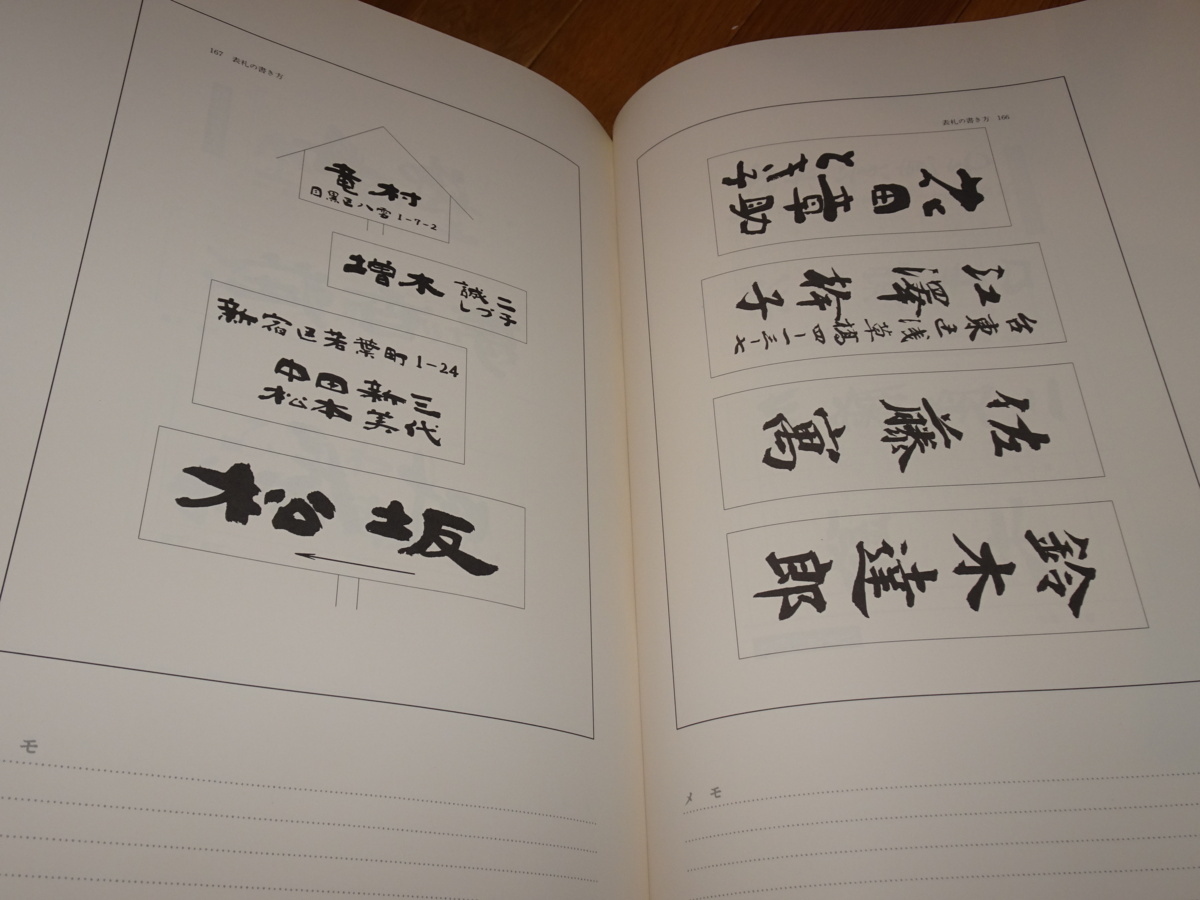 表札の書き方 166
田章助
とき子
江澤子
台東区浅草橋四ー一三ー七
佐藤萬
鈴木達郎
メモ
167 表札の書き方
竜村
目黒区八雲1-7-2
増木 誠二
しづ子
新宿区若葉町1-24
中田新三
松本美代
松坂
モ